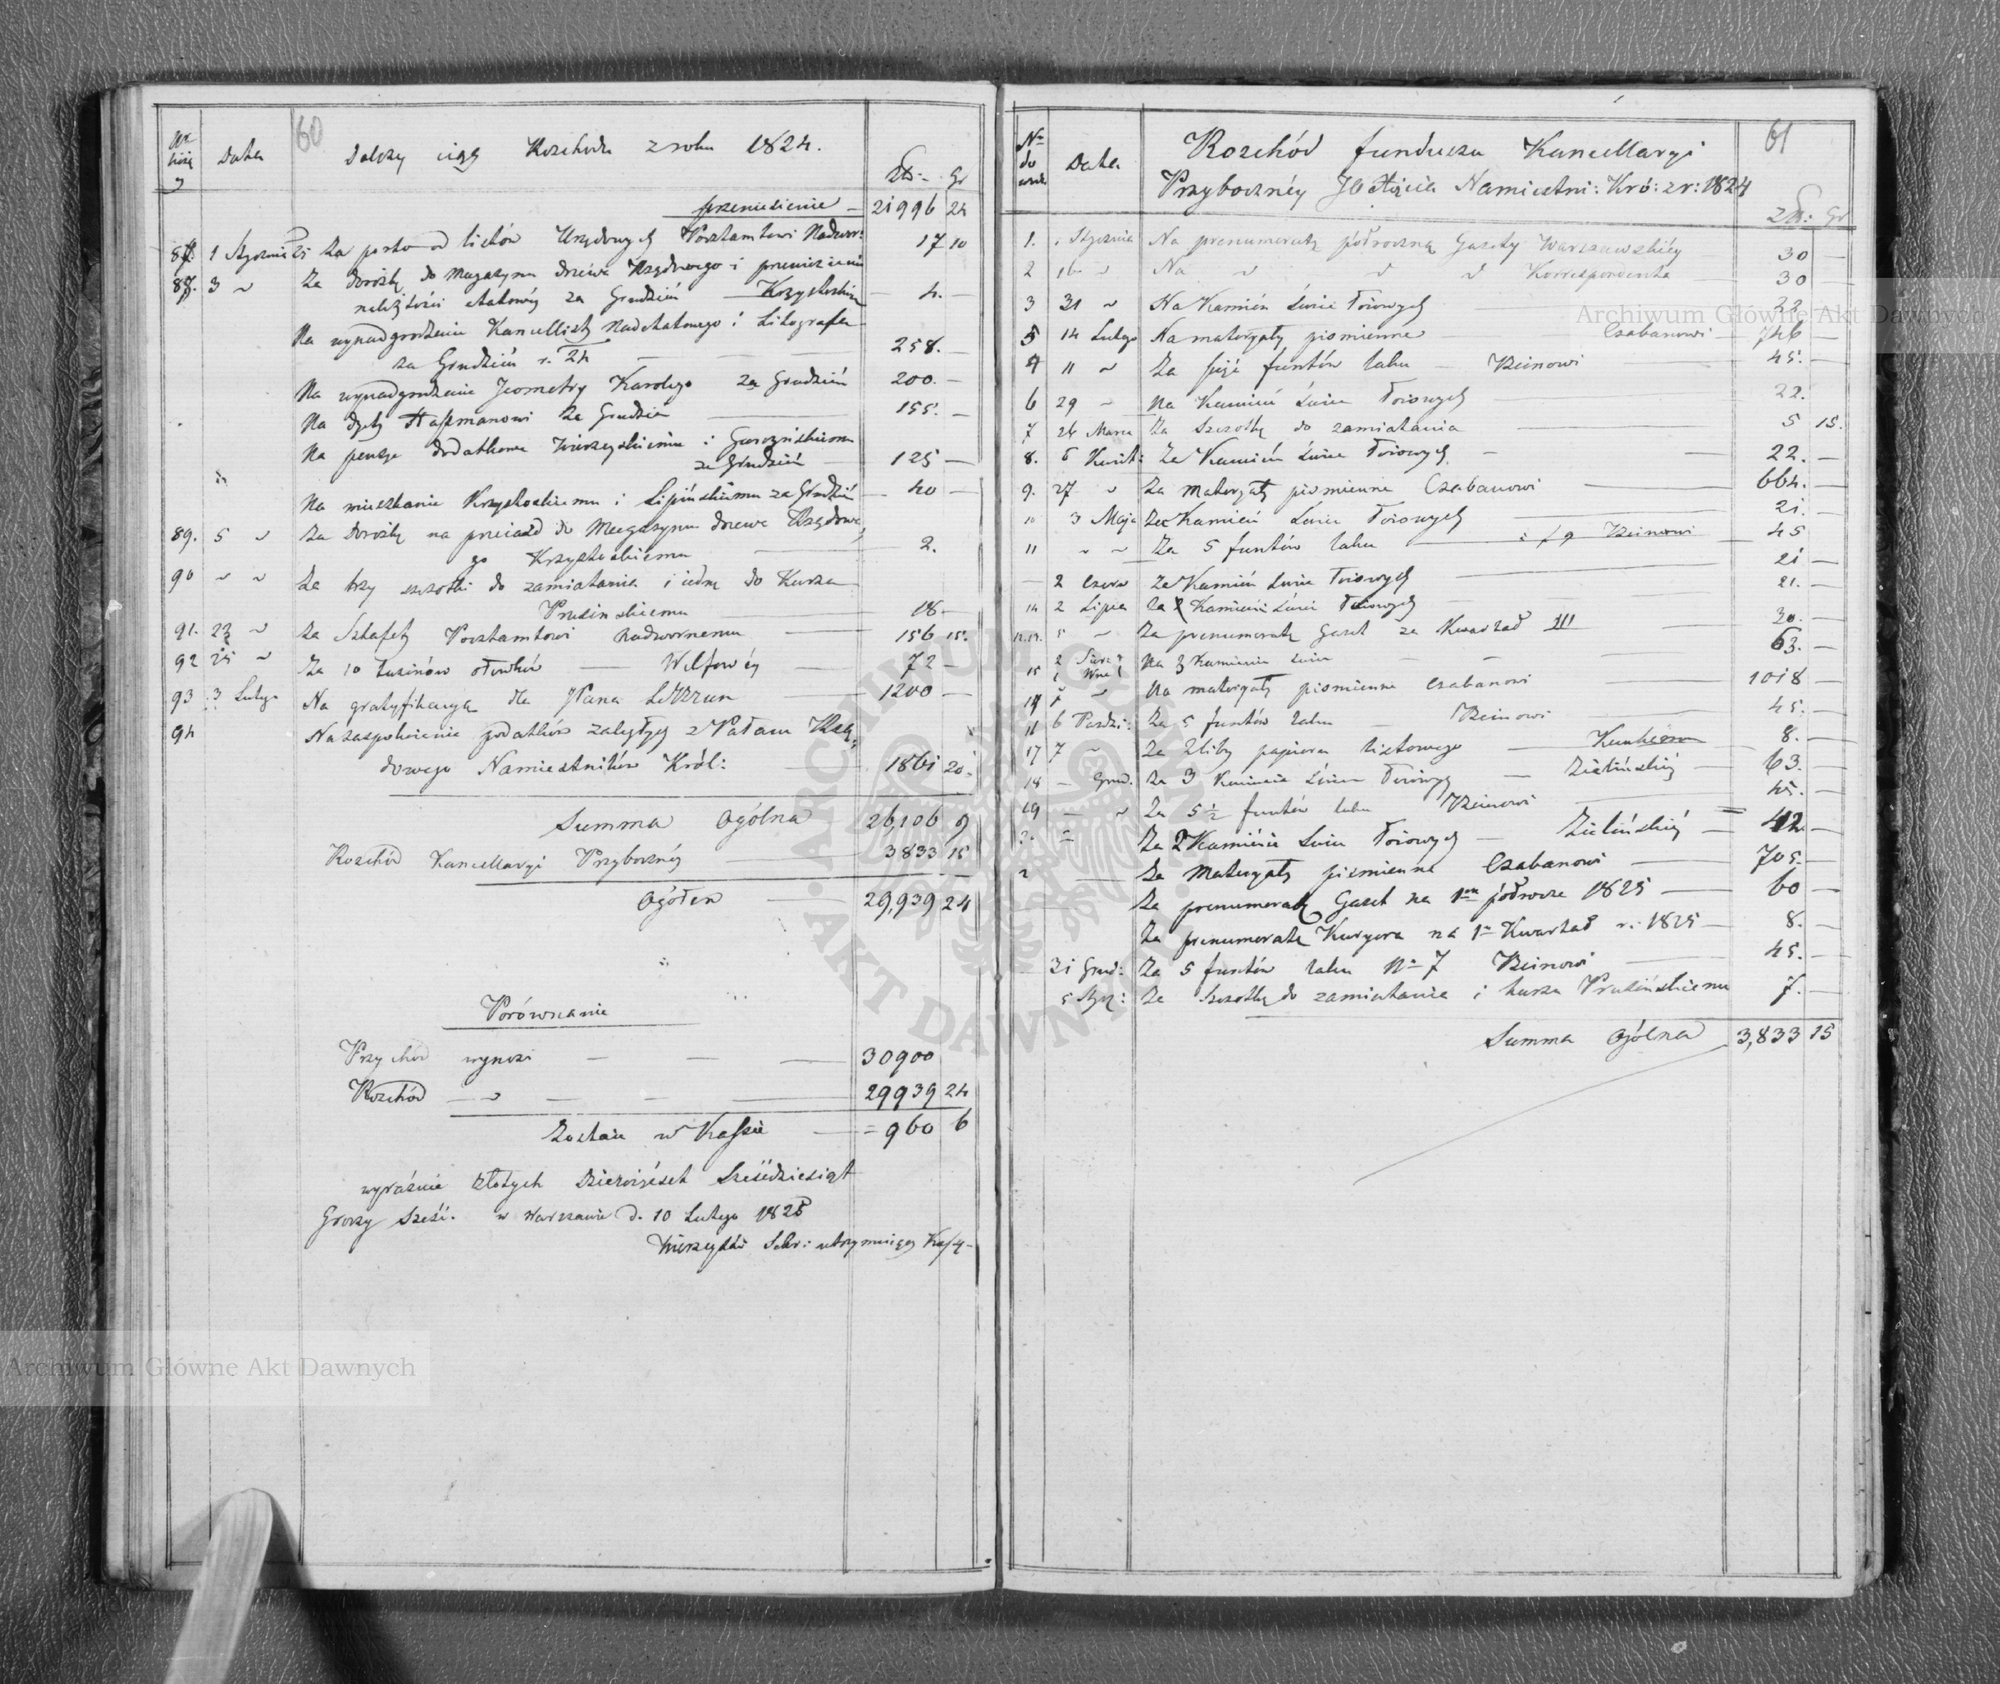 60
Data
Dalszy ciąg Rozchodu z roku 1824.
Zł: Gr
przeniesienie 21996 24
1 Stycznia 25 Za porto od listów Urzędowych Pocztamtowi Nadwor: 17 10
3 " Za dorożkę do Magazynu drzewa Rządowego i przewiezienie
należytości etatowéy za Grudzień 4. —
Na wynadgrodzenie Kancellisty Nadetatowego i Litografa
za Grudzień r. 24 — 258. —
Na wynadgrodzenie Jeometry Karolego za Grudzień 200. —
Na dyety Hassmanowi Za Grudzień 155. —
Na pensye dodatkowe Wierzeyskiemu i
za Grudzień — 125 —
Na mieszkanie Krzyskoskiemu i Lipińskiemu za Grudzień — 40 —
89. 5 " Za Dorożkę na przeiazd do Magazynu drzewa Rządowe,
go Krzyskoskiemu — 2.
90 " " Za trzy szczotki do zamiatania i iedną do Kurzu
Prusinskiemu — 18. —
91. 22 " Za Sztafety Pocztamtowi Nadwornemu — 156 15.
92 25 " Za 10 tuzinów ołówków — Wolfowéy — 72 —
93 3 Lutego Na gratyfikacyą dla JPana LeBrun 1200 —
94 Na zaspokoienie podatków zaległych z Pałacu Rzą,
dowego Namiestników Król: — 1861 20.
Summa Ogólna 26,106 9
Rozchód Kancellaryi Przybocznéy — 3833 15
Ogółem — 29,939 24
Porównanie
Przychód wynosi — — — 30900
Rozchód — " — — — 29939 24
Zostaie w Kassie — = 960 6
wyraźnie Złotych Dziewięćset Sześćdziesiąt
Groszy Sześć. w Warszawie d. 10 Lutego 1825
Wierzeyski Sekr: utrzymuiący Kassę
61
No do wodu Data
Rozchód funduszu Kancellaryi
Przybocznéy JO Xięcia Namiestni: Kró: z r: 1824
Zł: Gr
1. Stycznia Na prenumeratę półroczną Gazety Warszawskiéy 30 —
2 16 " Na " " " Korrespondenta 30 —
3 31 " Na Kamień świec Łoiowych — 22 —
5 14 Lutego Na materyały piśmienne — Czabanowi — 746 —
4 11 " Za pięć funtów laku — Beinowi 45. —
6 29 " Na Kamień świec Łoiowych — 22.
7 26 Marca Za szczotkę do zamiatania — 5 15.
8. 6 Kwiet: Za Kamień świec Łoiowych — 22. —
9. 27 " Za materyały piśmienne Czabanowi — 664. —
10 3 Maja Za Kamień świec Łoiowych — 21. —
11 " " Za 5 funtów laku — Beinowi — 45
2 Czerw Za Kamień świec Łoiowych — 21 —
14 2 Lipca Za Kamień świec Łoiowych — 21. —
5 " Za prenumeratę Gazet za Kwartał III — 30. —
15 Na 3 Kamienie świec — — 63. —
7 " Na materyały piśmienne Czabanowi — 1018 —
16 6 Paźdz: Za 5 funtów laku — Beinowi — 45. —
17 7 " Za 2 libry papieru listowego — 8. —
18 — Grud. Za 3 Kamienie świec Łoiowych — Zielińskiéy — 63. —
19 — " Za 5 1/2 funtów laku Beinowi — 45. —
Za 2 Kamienie świec Łoiowych — Zielińskiéy = 42. —
Za Materyały piśmienne Czabanowi — 705. —
Za prenumeratę Gazet na 1e półrocze 1825 — 60 —
Za prenumeratę Kuryera na 1y Kwartał r: 1825 — 8. —
31 Grud: Za 5 funtów laku No 7 Beinowi — 45. —
5 Stycz: Za Szczotkę do zamiatania i kurzu Prusińskiemu 7. —
Summa Ogólna 3,833 15
Archiwum Główne Akt Dawnych
Archiwum Główne Akt Dawnych
ARCHIWUM GŁÓWNE AKT DAWNYCH